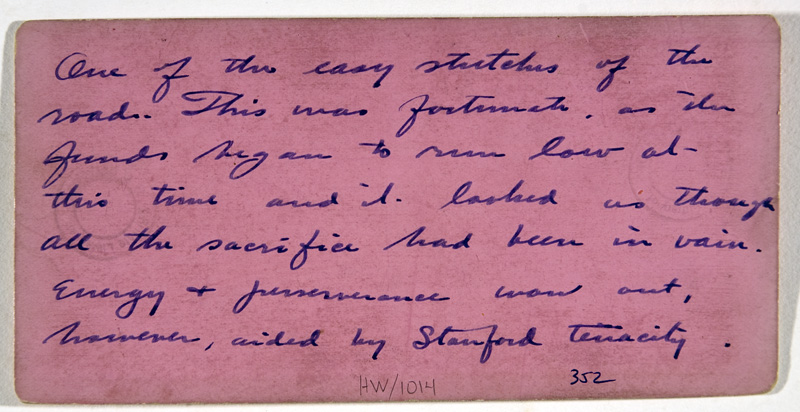 One of the easy stretches of the
road. This was fortunate, as the
funds began to run low at
this time and it looked as though
all the sacrifice had been in vain.
Energy + perserverance won out,
however, aided by Stanford tenacity.
HW/1014 352